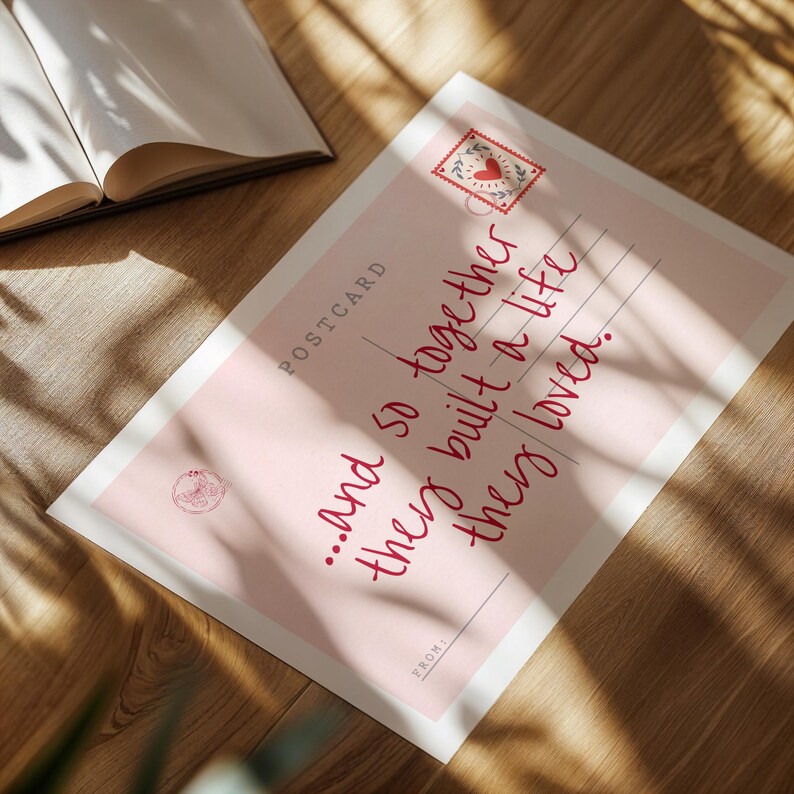 POSTCARD
...and so together
they built a life
they loved.
FROM: